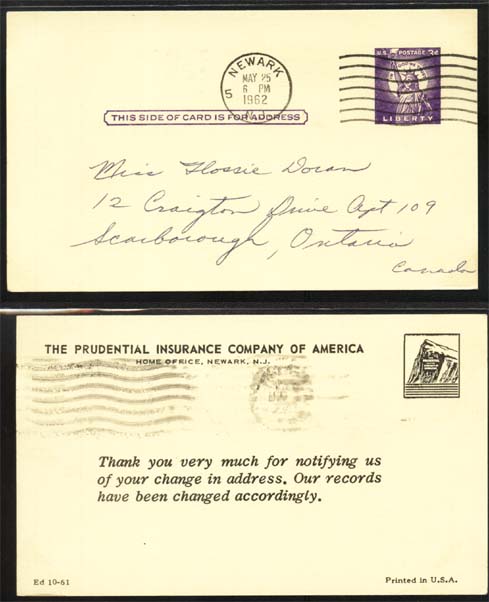 NEWARK
5
MAY 25
6 PM
1962
U.S. POSTAGE 3¢
LIBERTY
THIS SIDE OF CARD IS FOR ADDRESS
Miss Flossie Doran
12 Craigton Drive Apt 109
Scarborough, Ontario
Canada
THE PRUDENTIAL INSURANCE COMPANY OF AMERICA
HOME OFFICE, NEWARK, N.J.
Thank you very much for notifying us
of your change in address. Our records
have been changed accordingly.
Ed 10-61
Printed in U.S.A.